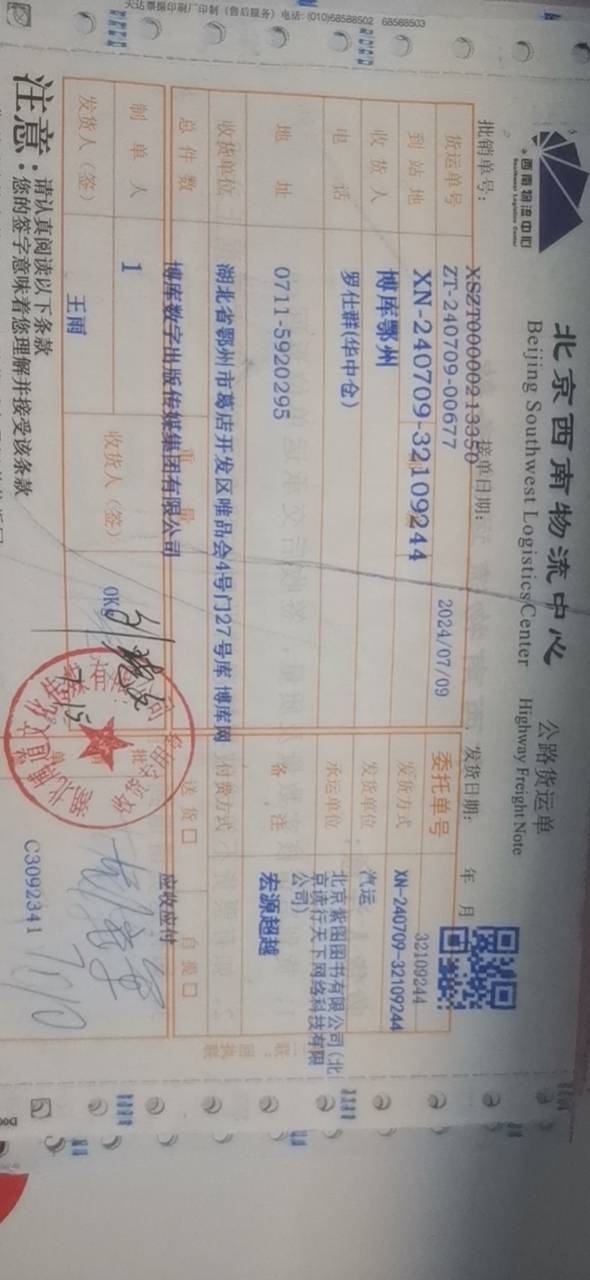 天达票据印刷厂印制（售后服务）电话：(010)68588502 68588503
西南物流中心
Southwest Logistics Center
北京西南物流中心
Beijing Southwest Logistics Center
公路货运单
Highway Freight Note
批销单号： XSZT00000213350 接单日期： 2024/07/09 发货日期： 年 月
货运单号 ZT-240709-00677 委托单号 32109244
到站地 XN-240709-32109244 发货方式 XN-240709-32109244
收货人 博库鄂州 发货单位 汽运
电话 罗仕群(华中仓) 承运单位 北京紫图图书有限公司(北京读行天下网络科技有限公司)
地址 0711-5920295 备注 宏源超越
收货单位 湖北省鄂州市葛店开发区唯品会4号门27号库 博库网 付费方式
总件数 博库数字出版传媒集团有限公司 重量 送货□ 应收应付 自提□
制单人 1 收货人（签） 0Kg
发货人（签） 王雨 C3092341
7/15
注意：
请认真阅读以下条款
您的签字意味着您理解并接受该条款